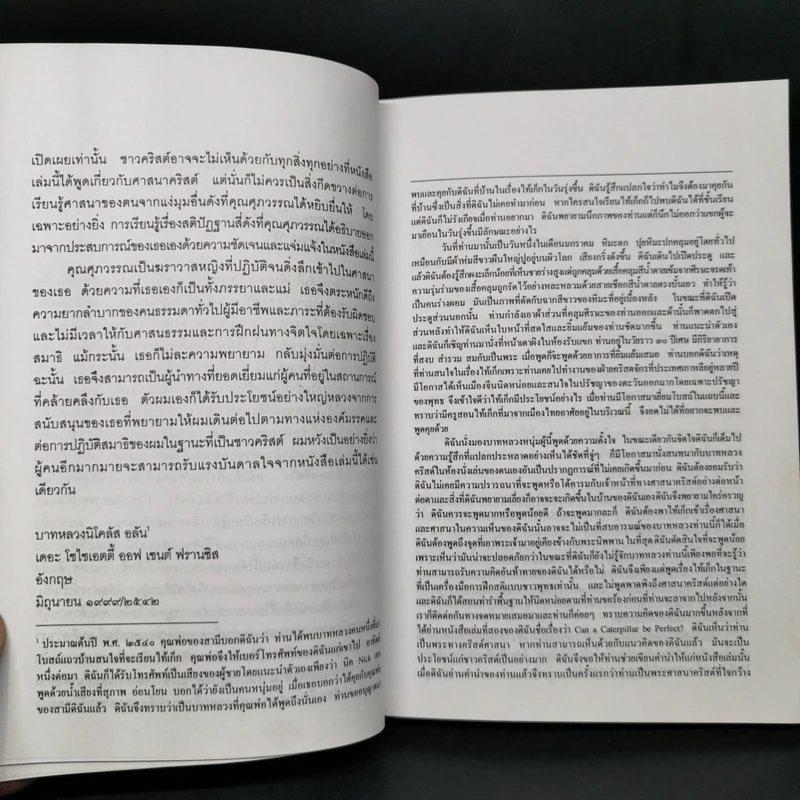 เปิดเผยเท่านั้น ชาวคริสต์อาจจะไม่เห็นด้วยกับทุกสิ่งทุกอย่างที่หนังสือ
เล่มนี้ได้พูดเกี่ยวกับศาสนาคริสต์ แต่นั่นก็ไม่ควรเป็นสิ่งกีดขวางต่อการ
เรียนรู้ศาสนาของตนจากแง่มุมอื่นดังที่คุณศุภวรรณได้หยิบยื่นให้ โดย
เฉพาะอย่างยิ่ง การเรียนรู้เรื่องสติปัฏฐานสี่ดังที่คุณศุภวรรณได้อธิบายออก
มาจากประสบการณ์ของเธอเองด้วยความชัดเจนและแจ่มแจ้งในหนังสือเล่มนี้
คุณศุภวรรณเป็นฆราวาสหญิงที่ปฏิบัติจนดิ่งลึกเข้าไปในศาสนา
ของเธอ ด้วยความที่เธอเองก็เป็นทั้งภรรยาและแม่ เธอจึงตระหนักดีถึง
ความยากลำบากของคนธรรมดาทั่วไปผู้มีอาชีพและภาระที่ต้องรับผิดชอบ
และไม่มีเวลาให้กับศาสนธรรมและการฝึกฝนทางจิตใจโดยเฉพาะเรื่อง
สมาธิ แม้กระนั้น เธอก็ไม่ละความพยายาม กลับมุ่งมั่นต่อการปฏิบัติ
ฉะนั้น เธอจึงสามารถเป็นผู้นำทางที่ยอดเยี่ยมแก่ผู้คนที่อยู่ในสถานการณ์
ที่คล้ายคลึงกับเธอ ตัวผมเองก็ได้รับประโยชน์อย่างใหญ่หลวงจากการ
สนับสนุนของเธอที่พยายามให้ผมเดินต่อไปตามทางแห่งองค์มรรคและ
ต่อการปฏิบัติสมาธิของผมในฐานะที่เป็นชาวคริสต์ ผมหวังเป็นอย่างยิ่งว่า
ผู้คนอีกมากมายจะสามารถรับแรงบันดาลใจจากหนังสือเล่มนี้ได้เช่น
เดียวกัน
บาทหลวงนิโคลัส อลัน¹
เดอะ โซไซเอตตี้ ออฟ เซนต์ ฟรานซิส
อังกฤษ
มิถุนายน ๑๙๙๙/๒๕๔๒
¹ ประมาณต้นปี พ.ศ. ๒๕๔๐ คุณพ่อของสามีบอกดิฉันว่า ท่านได้พบบาทหลวงคนหนึ่งที่มา
โบสถ์แถวบ้านสนใจที่จะเรียนไท้เก็ก คุณพ่อจึงให้เบอร์โทรศัพท์ของดิฉันแก่เขาไป อาทิตย์
หนึ่งต่อมา ดิฉันก็ได้รับโทรศัพท์เป็นเสียงของผู้ชายโดยแนะนำตัวเองเพียงว่า นิค Nick เขา
พูดด้วยน้ำเสียงที่สุภาพ อ่อนโยน บอกได้ว่ายังเป็นคนหนุ่มอยู่ เมื่อเธอบอกว่าได้คุยกับคุณพ่อ
ของสามีดิฉันแล้ว ดิฉันจึงทราบว่าเป็นบาทหลวงที่คุณพ่อได้พูดถึงนั่นเอง ท่านขออนุญาตมา
พบและคุยกับดิฉันที่บ้านในเรื่องไท้เก็กในวันรุ่งขึ้น ดิฉันรู้สึกแปลกใจว่าทำไมจึงต้องมาคุยกัน
ที่บ้านซึ่งเป็นสิ่งที่ดิฉันไม่เคยทำมาก่อน หากใครสนใจเรียนไท้เก็กก็ไปพบดิฉันได้ที่ชั้นเรียน
แต่ดิฉันก็ไม่รังเกียจเมื่อท่านอยากมา ดิฉันพยายามนึกภาพของท่านแต่ก็นึกไม่ออกว่าแขกผู้จะ
มาเยือนในวันรุ่งขึ้นมีลักษณะอย่างไร
วันที่ท่านมานั้นเป็นวันหนึ่งในเดือนมกราคม หิมะตก ปุยหิมะปกคลุมอยู่โดยทั่วไป
เหมือนกับมีผ้าห่มสีขาวผืนใหญ่ปูอยู่บนผิวโลก เสียงกริ่งดังขึ้น ดิฉันเดินไปเปิดประตู และ
แล้วดิฉันต้องรู้สึกผงะเล็กน้อยที่เห็นชายร่างสูงแต่ถูกคลุมด้วยเสื้อคลุมสีน้ำตาลเข้มจากศีรษะจรดเท้า
ความรุ่มร่ามของเสื้อคลุมถูกรัดไว้อย่างหละหลวมด้วยสายเชือกสีน้ำตาลตรงบั้นเอว ทำให้รู้ว่า
เป็นคนร่างผอม มันเป็นภาพที่ตัดกับฉากสีขาวของหิมะที่อยู่เบื้องหลัง ในขณะที่ดิฉันเปิด
ประตูส่วนนอกนั้น ท่านกำลังเอาผ้าส่วนที่คลุมศีรษะของท่านออกและผ้านั้นก็พาดตกไปสู่
ส่วนหลังทำให้ดิฉันเห็นใบหน้าที่สดใสและยิ้มแย้มของท่านชัดมากขึ้น ท่านแนะนำตัวเอง
และดิฉันก็เชิญท่านมานั่งที่หน้าเตาผิงในห้องรับแขก ท่านอยู่ในวัยราว ๓๐ ปีเศษ มีกิริยาอาการ
ที่สงบ สำรวม สมกับเป็นพระ เมื่อพูดก็จะพูดด้วยอาการที่ยิ้มแย้มเสมอ ท่านบอกดิฉันว่าเหตุ
ที่ท่านสนใจในเรื่องไท้เก็กเพราะท่านเคยไปทำงานของฝ่ายคริสตจักรที่ประเทศเกาหลีอยู่หลายปี
มีโอกาสได้เห็นมวยจีนนิดหน่อยและสนใจในปรัชญาของตะวันออกมากโดยเฉพาะปรัชญา
ของพุทธ จึงเข้าใจว่าไท้เก็กมีประโยชน์อย่างไร เมื่อท่านมีโอกาสมาเยี่ยมโบสถ์ในแถบนี้และ
ทราบว่ามีครูสอนไท้เก็กที่มาจากเมืองไทยอาศัยอยู่ในบริเวณนี้ จึงอดไม่ได้ที่อยากจะพบและ
พูดคุยด้วย
ดิฉันนั่งมองบาทหลวงหนุ่มผู้นี้พูดด้วยความตั้งใจ ในขณะเดียวกันจิตใจดิฉันก็เต็มไป
ด้วยความรู้สึกที่แปลกประหลาดอย่างไม่ได้ตั้งใจ ที่จู่ๆ ก็มีโอกาสมานั่งสนทนากับบาทหลวง
คริสต์ในห้องนั่งเล่นของตนเองอันเป็นปรากฏการณ์ที่ไม่เคยเกิดขึ้นมาก่อน ดิฉันต้องยอมรับว่า
ดิฉันไม่เคยมีความปรารถนาที่จะพูดหรือโต้คารมกับเจ้าหน้าที่ทางศาสนาคริสต์อย่างต่อหน้า
ต่อตาและสิ่งที่ดิฉันพยายามเลี่ยงก็อาจจะจะเกิดขึ้นในบ้านของดิฉันเองดิฉันจึงพยายามใคร่ครวญ
ว่า ดิฉันควรจะพูดมากหรือพูดน้อยดี ถ้าจะพูดมากละก็ ดิฉันต้องพาไท้เก็กเข้าเรื่องศาสนา
และศาสนาในความเห็นของดิฉันนั้นอาจจะไม่เป็นที่สบอารมณ์ของบาทหลวงท่านนี้ก็ได้เมื่อ
ดิฉันต้องพูดดึงจุดที่เอาพระเจ้ามาอยู่เคียงข้างกับพระนิพพาน ในที่สุด ดิฉันตัดสินใจที่จะพูดน้อย
เพราะเห็นว่ามันน่าจะปลอดภัยกว่าในขณะที่ดิฉันก็ยังไม่รู้จักบาทหลวงท่านนี้เพียงพอที่จะรู้ว่า
ท่านจะสามารถรับความคิดอันท้าทายของดิฉันได้หรือไม่ ดิฉันจึงเพียงแต่พูดเรื่องไท้เก็กในฐานะ
ที่เป็นเครื่องมือการฝึกสติแบบชาวพุทธเท่านั้น และไม่พูดพาดพิงถึงศาสนาคริสต์แต่อย่างใด
และดิฉันก็ได้สอนท่ารำพื้นฐานให้นิดหน่อยตามที่ท่านขอร้องก่อนที่ท่านจะลาจากไปหลังจากนั้น
เราก็ติดต่อกันทางจดหมายเสมอมาและท่านก็ค่อยๆ ทราบความคิดของดิฉันมากขึ้นหลังจากที่
ได้อ่านหนังสือเล่มที่สองของดิฉันชื่อเรื่องว่า Can a Caterpillar be Perfect? ดิฉันเห็นว่าท่าน
เป็นพระทางคริสต์ศาสนา หากท่านสามารถเห็นด้วยกับแนวคิดของดิฉันแล้ว มันจะเป็น
ประโยชน์แก่ชาวคริสต์เป็นอย่างมาก ดิฉันจึงขอให้ท่านช่วยเขียนคำนำให้แก่หนังสือเล่มนั้น
เมื่อดิฉันอ่านคำนำของท่านแล้วจึงทราบเป็นครั้งแรกว่าท่านเป็นพระศาสนาคริสต์ที่ใจกว้าง